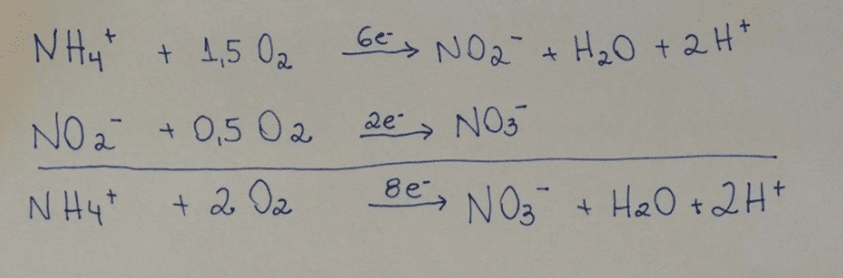 NH₄⁺ + 1,5 O₂ 6e⁻→ NO₂⁻ + H₂O + 2H⁺
NO₂⁻ + 0,5 O₂ 2e⁻→ NO₃⁻
NH₄⁺ + 2 O₂ 8e⁻→ NO₃⁻ + H₂O + 2H⁺